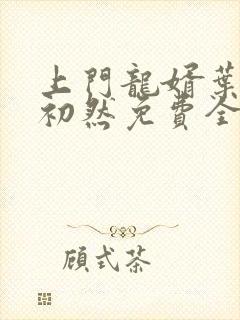 上門龍婿葉
初然免費全
顧式茶